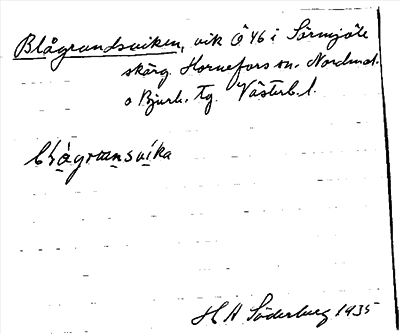 Blågrundsviken, vik Ö 46 i Sörmjöle
skärg. Hornefors sn. Nordmal.
o Bjurh. tg. Västerb. l.
blågrunsvika
H A Söderberg 1935